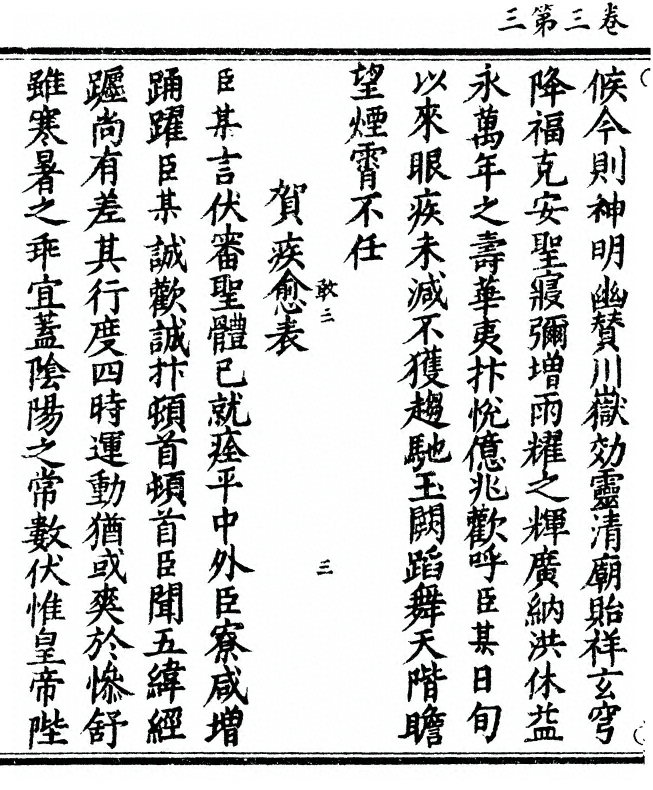 三第三卷
候今則神明幽贊川嶽効靈清廟貽祥玄穹
降福克安聖寢彌增兩耀之輝廣納洪休益
永萬年之壽華夷抃悅億兆歡呼臣某日旬
以來眼疾未減不獲趨馳玉闕蹈舞天階瞻
望煙霄不任
敢三
三
賀疾愈表
臣某言伏審聖體已就痊平中外臣寮咸增
踊躍臣某誠歡誠抃頓首頓首臣聞五緯經
躔尚有差其行度四時運動猶或爽於慘舒
雖寒暑之乖宜蓋陰陽之常數伏惟皇帝陛